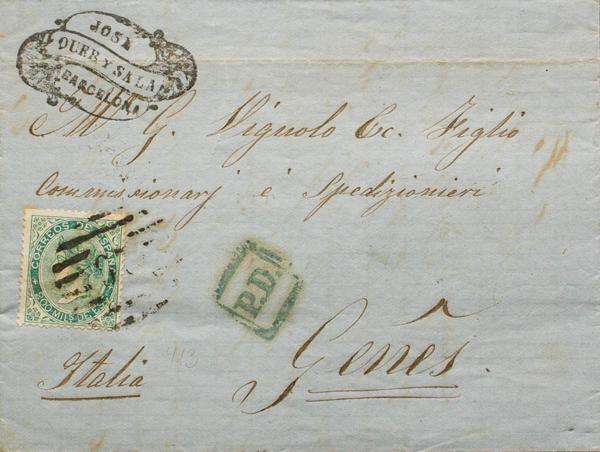 JOSÉ
OURRY SALA
BARCELONA
M G. Vignolo Ec. Figlio
Commissionarj é Spedizionieri
CORREOS DE ESPAÑA
200 MILS DE E
P.D.
413
Italia
Genês.